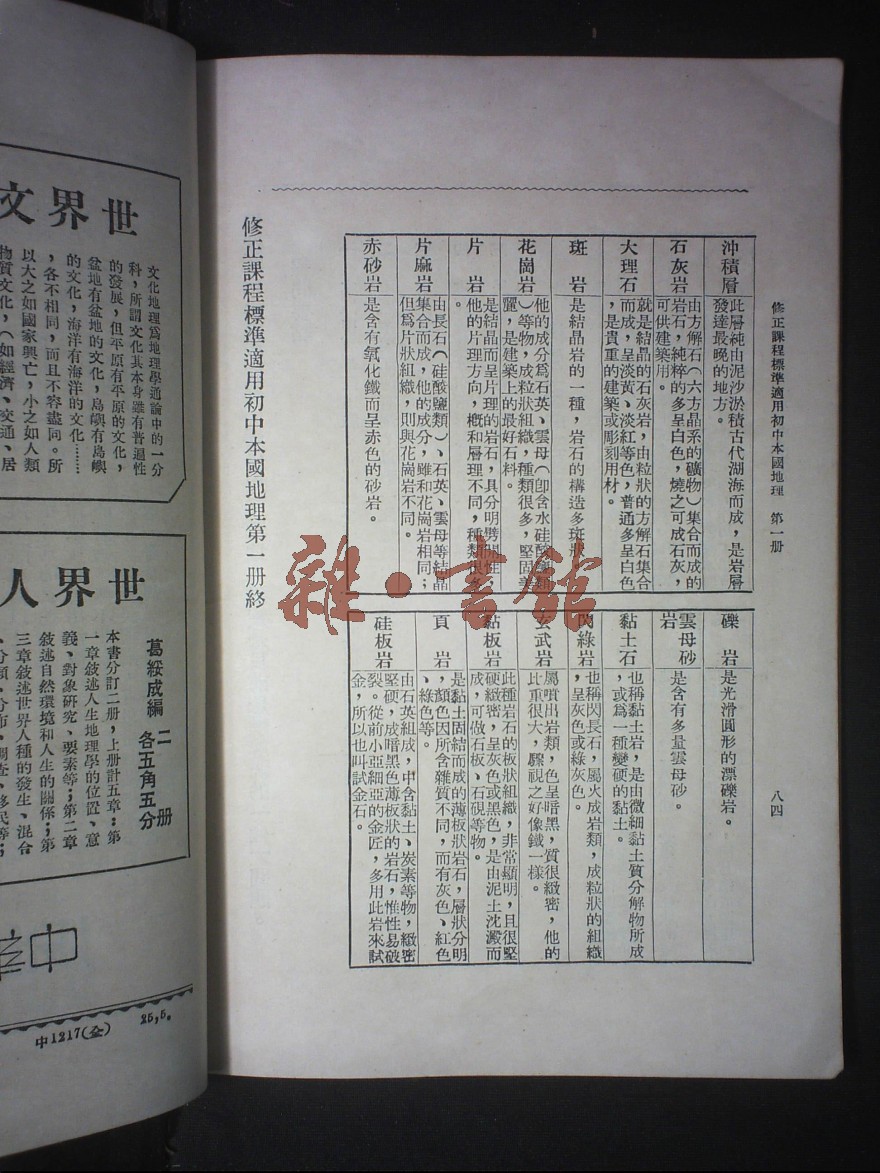 修正課程標準適用初中本國地理 第一册
八四
沖積層
此層純由泥沙淤積古代湖海而成,是岩層
發達最晚的地方。
石灰岩
由方解石(六方晶系的礦物)集合而成的
岩石,純粹的多呈白色,燒之可成石灰,
可供建築用。
大理石
就是結晶的石灰岩,由粒狀的方解石集合
而成,呈淡黃、淡紅等色,普通多呈白色
,是貴重的建築或彫刻用材。
斑岩
是結晶岩的一種,岩石的構造多斑狀
花崗岩
他的成分爲石英、雲母(卽含水硅酸鹽類
)等物,成粒狀組織,種類很多,堅固美
麗,是建築上的最好石料。
片岩
是結晶而呈片理的岩石,具分明劈開性,
他的片理方向,概和層理不同,種類很多
。
片麻岩
由長石(硅酸鹽類)、石英、雲母等結晶
集合而成,他的成分,雖和花崗岩相同;
但爲片狀組織,則與花崗岩不同。
赤砂岩
是含有氧化鐵而呈赤色的砂岩。
礫岩
是光滑圓形的漂礫岩。
雲母砂
岩
是含有多量雲母砂。
黏土石
也稱黏土岩,是由微細黏土質分解物所成
,或爲一種變硬的黏土。
閃綠岩
也稱閃長石,屬火成岩類,成粒狀的組織
,呈灰色或綠灰色。
玄武岩
屬噴出岩類,色呈暗黑,質很緻密,他的
比重很大,驟視之好像鐵一樣。
黏板岩
此種岩石的板狀組織,非常顯明,且很堅
硬緻密,呈灰色或黑色,是由泥土沈澱而
成,可做石板、石硯等物。
頁岩
是黏土固結而成的薄板狀岩石,層狀分明
,顏色因所含雜質不同,而有灰色、紅色
、綠色等。
硅板岩
由石英組成,中含黏土、炭素等物,緻密
堅硬,成暗黑色薄板狀的岩石,惟性易破
裂。從前小亞細亞的金匠,多用此岩來試
金,所以也叫試金石。
修正課程標準適用初中本國地理第一册終
雜·書館
世界文
文化地理爲地理學通論中的一分
科,所謂文化其本身雖有普遍性
的發展,但平原有平原的文化,
盆地有盆地的文化,島嶼有島嶼
的文化,海洋有海洋的文化……
,各不相同,而且不容盡同。所
以大之如國家興亡,小之如人類
物質文化,(如經濟、交通、居
世界人
葛綏成編
二册
各五角五分
本書分訂二册,上册計五章:第
一章敘述人生地理學的位置、意
義、對象研究、要素等;第二章
敘述自然環境和人生的關係;第
三章敘述世界人種的發生、混合
、分類、分佈、調查、移民等;
中華
中1217(全) 25,5。